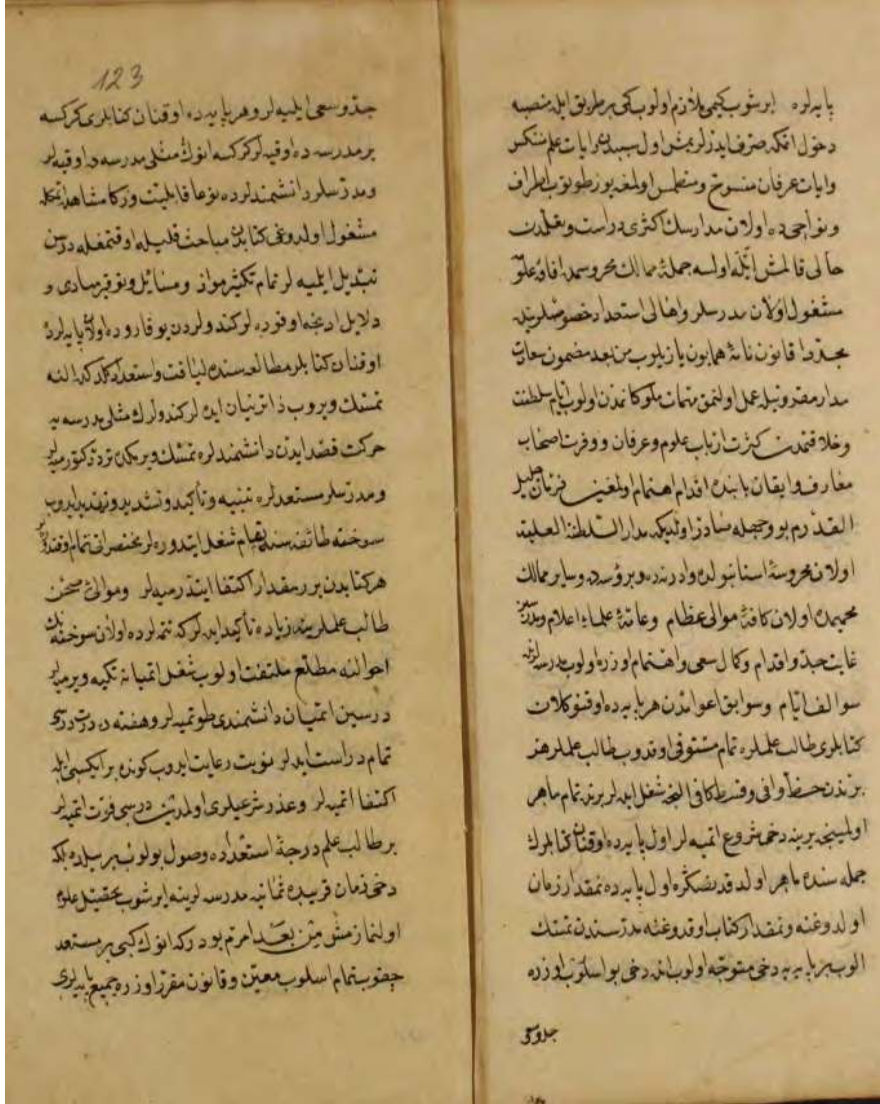 پایه‌لره ایرشوب کیمی ملازم اولوب کمی بر طریق ایله منصبه
دخول اتمکه صرف ایدرلر یمش اول سببدن رایات علم منکس
وایات عرفان منسوخ ومنطمس اولمغه یوز طوتوب اطراف
ونواحی ده اولان مدارسك اکثری دراست و
خالی قالمش ایله اولسه جملهٔ ممالك محروسمده افادهٔ علوم
مشغول اولان مدرسلر واهالی استعداد خصوصلرینه
مجددا قانون نامهٔ همایون یازیلوب من بعد مضمون سعادت
مدار مقرونیله عمل اولنمق مهمات ملوکانه‌دن اولوب ایام سلطنت
وخلافتمدن کثرت ارباب علوم وعرفان ووفرت اصحاب
معارف وایقان بابنده اقدام اهتمام اولمغین فرمان جلیل
القدرم بو وجهله صادر اولدیکه مدار السلطنة العلیه
اولان محروسهٔ استانبولده وادرنه‌ده وبروسه‌ده وسایر ممالك
محمیه‌ده اولان کافهٔ موالی عظام وعامهٔ علماء اعلام ومدرسین
غایت جد واقدام وکمال سعی واهتمام اوزره اولوب مدرسه‌لرنده
سوالف ایام وسوابق اعوامدن هر پایه‌ده اوقنو کلان
کتابلری طالب علملره تمام مستوفی اوقدوب طالب علملر هنر
برندن حظ وافی وقسط کافی البحه شغل ایدلر برنده تمام ماهر
اولمینجه برینه دخی شروع اتمیه‌لر اول پایه‌ده اوقنان کتابلرك
جمله سنده ماهر اولدقدنصکره اول پایه‌ده نمقدار زمان
اولدوغنه ونمقدار کتاب اوقدوغنه مدرسندن تمسك
الوب بر پایه‌یه دخی متوجه اولوب انده دخی بو اسلوب اوزره
جد وسعی
123
جد وسعی ایلیه‌لر وهر پایه‌ده اوقنان کتابلری کرکسه
بر مدرسه‌ده اوقیه‌لر کرکسه انوك مثلی مدرسه‌ده اوقیه‌لر
ومدرسلر دانشمندلرده نوعا قابلیت وذکا مشاهده اتمکله
مشغول اولدوغی کتابدن مباحث قلیله اوقتمغله درسن
تبدیل ایلمیه‌لر تمام تکثیر مواد ومسائل وتوفیر مبادی و
دلایل ادغنه اوقوده‌لر کندولردن یوقاروده اولان پایه‌لرده
اوقنان کتابلر مطالعه‌سنده لیاقت واستعداد کلمدکه النه
تمسك ویروب ذاتر نیان ایده‌لر کندولرك مثلی مدرسه‌یه
حرکت قصد ایدن دانشمندلره تمسك ویرمکدن تردد کتورمیه‌لر
ومدرسلر مستعدلره تنبیه وتأکید وتشدید وتهدید ایدوب
سوخته طائفه‌سنه تمام شغل ایتدوره‌لر مختصراتی تمام اوقدلر
هر کتابدن برر مقدار اکتفا ایتدرمیه‌لر وموالیٔ صحن
طالب علملرینه زیاده تأکید ایده‌لر که تتمه‌لرده اولان سوخته‌نك
احوالنه مطلع ملتفت اولوب شغل اتمیانه تکیه ویرمیه‌لر
درسین اتمیان دانشمندی طوتمیه‌لر وهفته‌ده درت درسی
تمام دراست ایده‌لر نوبت رعایت ایدوب کونده بر ایکسی ایله
اکتفا اتمیه‌لر وعذر شرعیلری اولمدین درسی فوت اتمیه‌لر
بر طالب علم درجهٔ استعداده وصول بولوب بر سیلده بلکه
دخی زمان قریبده ثمانیه مدرسه‌لرینه ایرشوب تحقیق علوم
اولنماز من بعد امرم بودر که انوك کبی بر مستعد
چقوب تمام اسلوب معین وقانون مقرر اوزره جمیع پایه‌لری